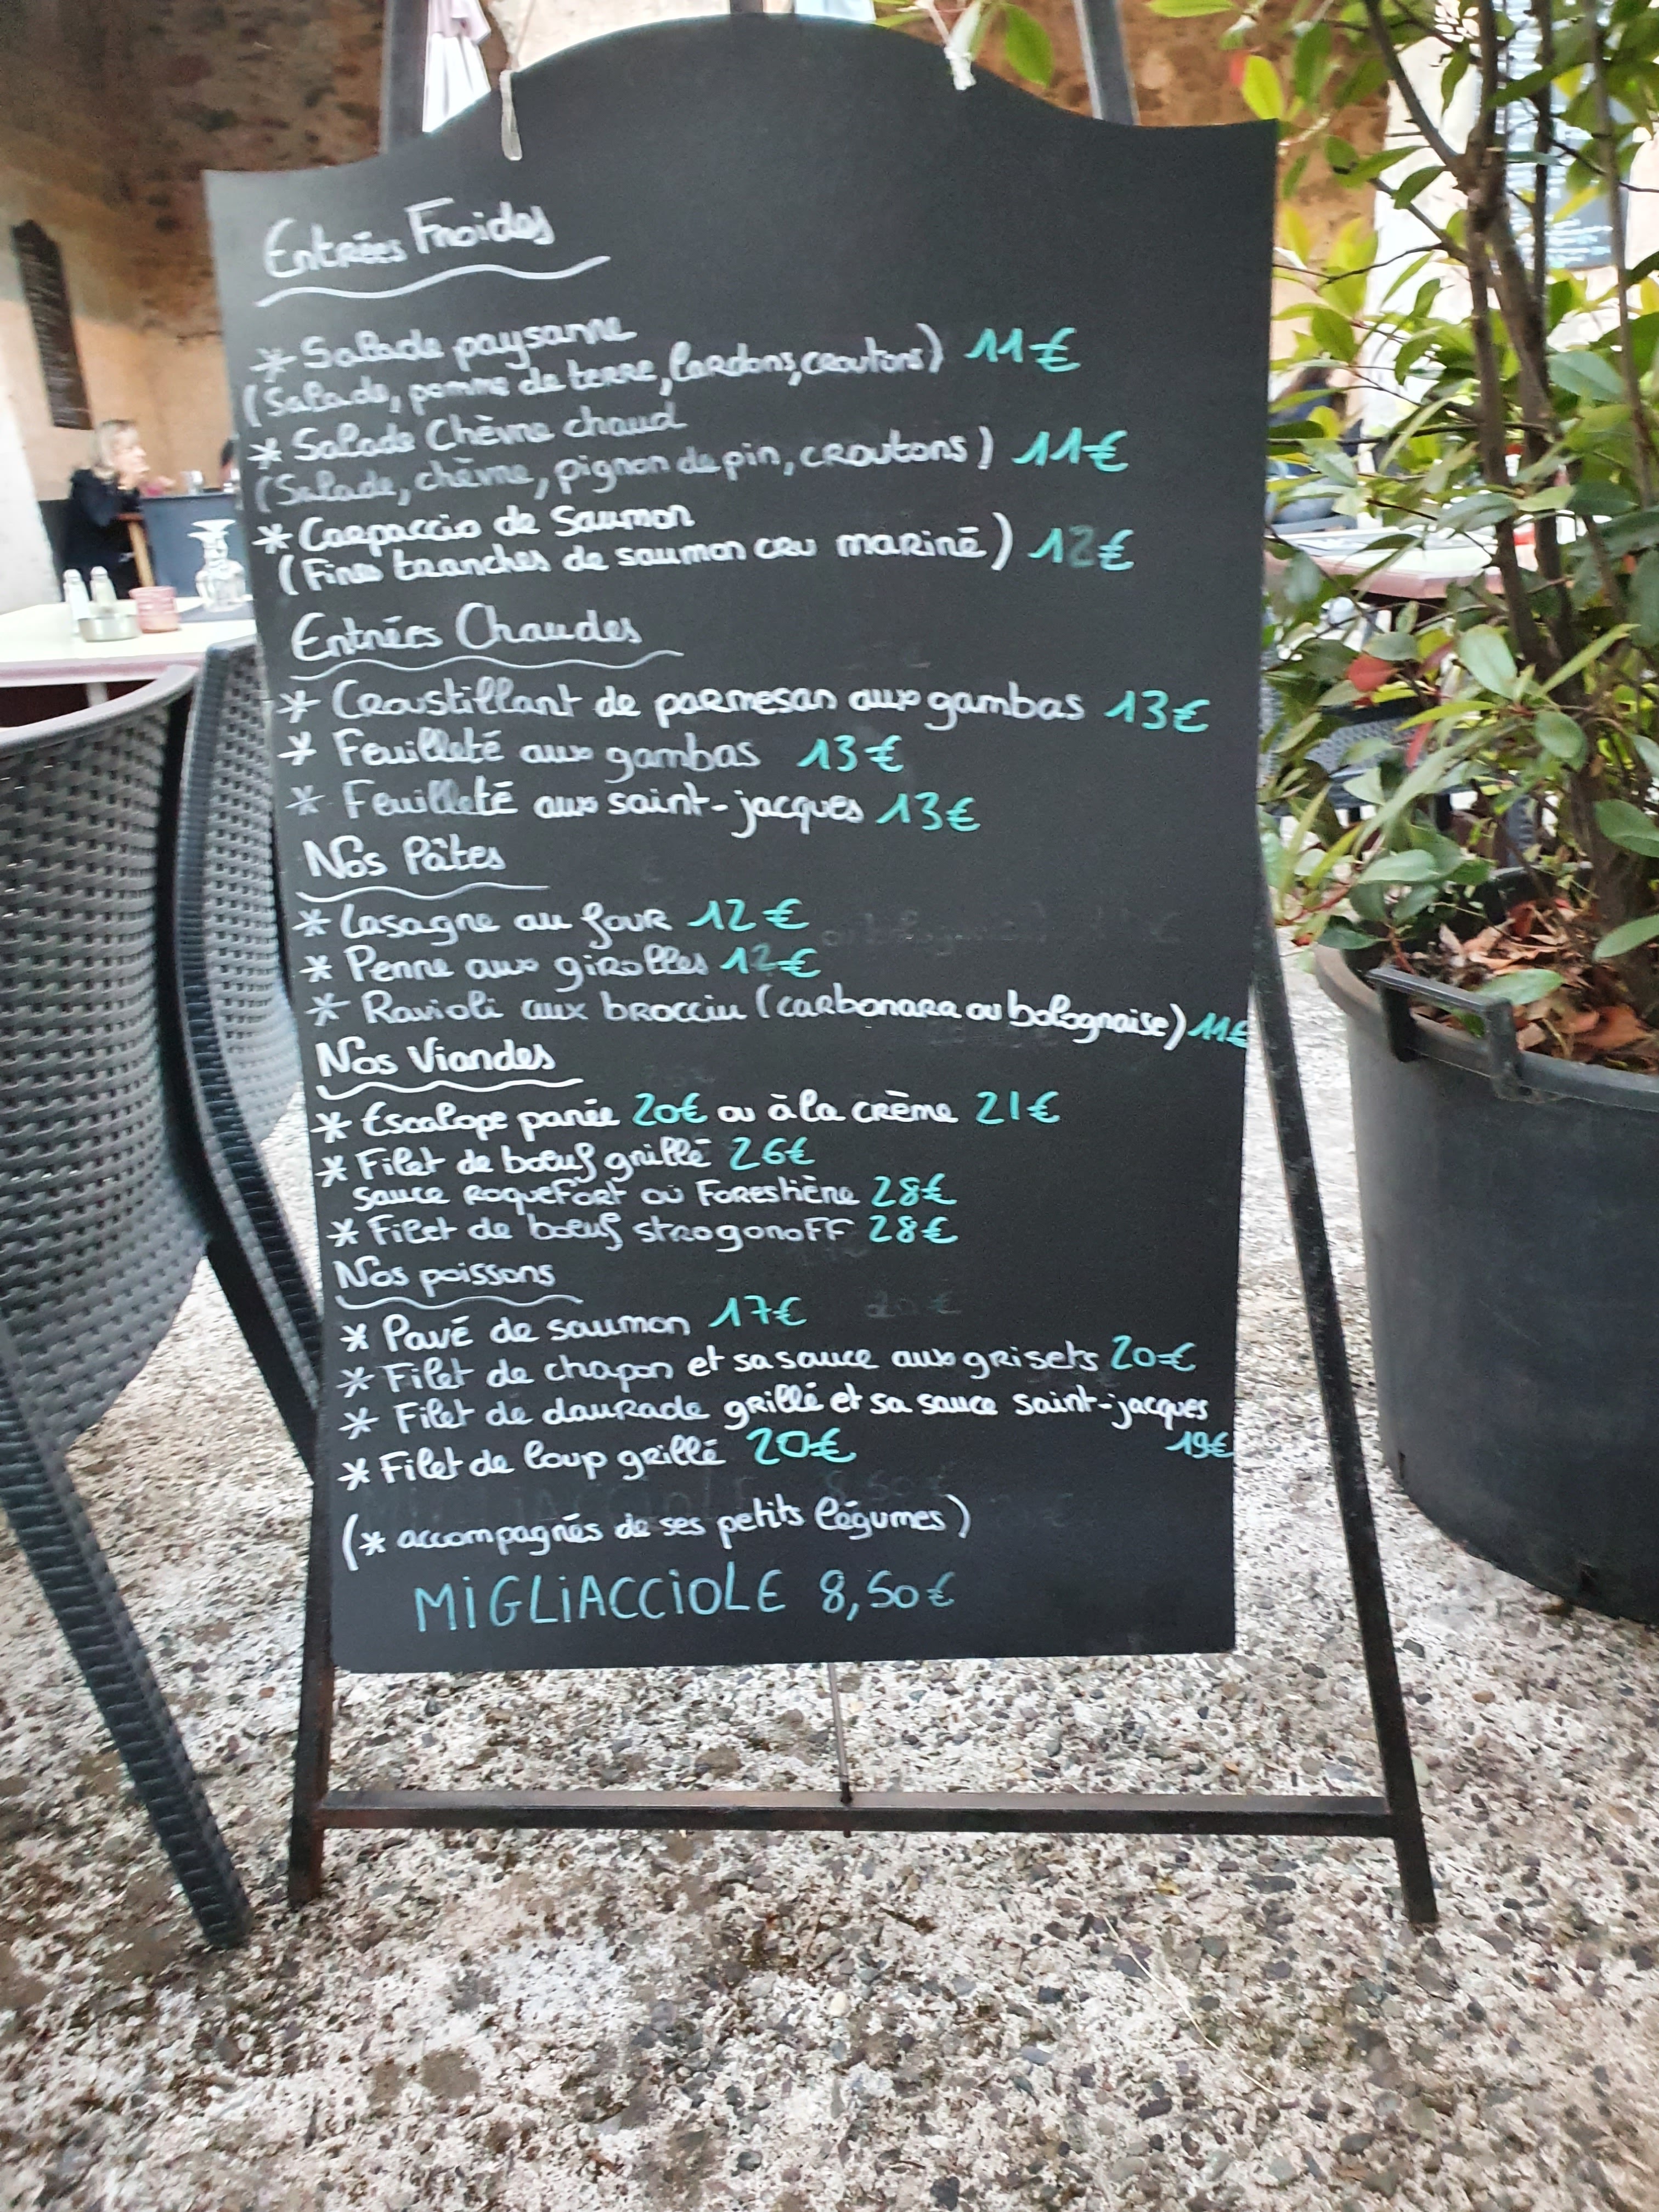 Entrées Froides
* Salade paysanne
(Salade, pomme de terre, lardons, croutons) 11€
* Salade Chèvre chaud
(Salade, chèvre, pignon de pin, croutons) 11€
* Carpaccio de Saumon
(Fines tranches de saumon cru mariné) 12€
Entrées Chaudes
* Croustillant de parmesan aux gambas 13€
* Feuilleté aux gambas 13€
* Feuilleté aux saint-jacques 13€
Nos Pâtes
* Lasagne au four 12€
* Penne aux girolles 12€
* Ravioli aux brocciu (carbonara ou bolognaise) 11€
Nos Viandes
* Escalope panée 20€ ou à la crème 21€
* Filet de bœuf grillé 26€
sauce Roquefort ou Forestière 28€
* Filet de bœuf strogonoff 28€
Nos poissons
* Pavé de saumon 17€
* Filet de chapon et sa sauce aux grisets 20€
* Filet de daurade grillé et sa sauce saint-jacques
19€
* Filet de loup grillé 20€
(* accompagnés de ses petits légumes)
MiGLiACCiOLE 8,50€